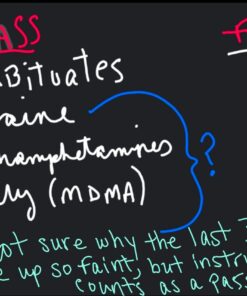 PASS
Bituates
aine
amphetamines
ly (MDMA)
?
ot sure why the last
e up so faint, but instru
counts as a pass